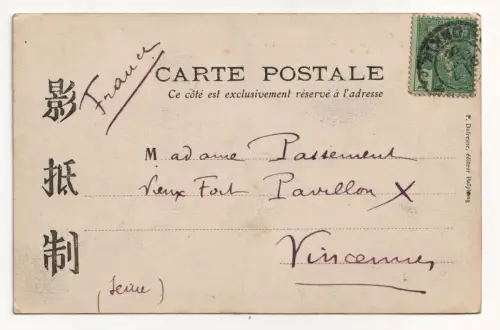 France
CARTE POSTALE
Ce côté est exclusivement réservé à l'adresse
影
抵
制
Madame Passement
Vieux Fort Pavillon X
Vincennes
(Seine)
P. Dufresne, éditeur Haïphong